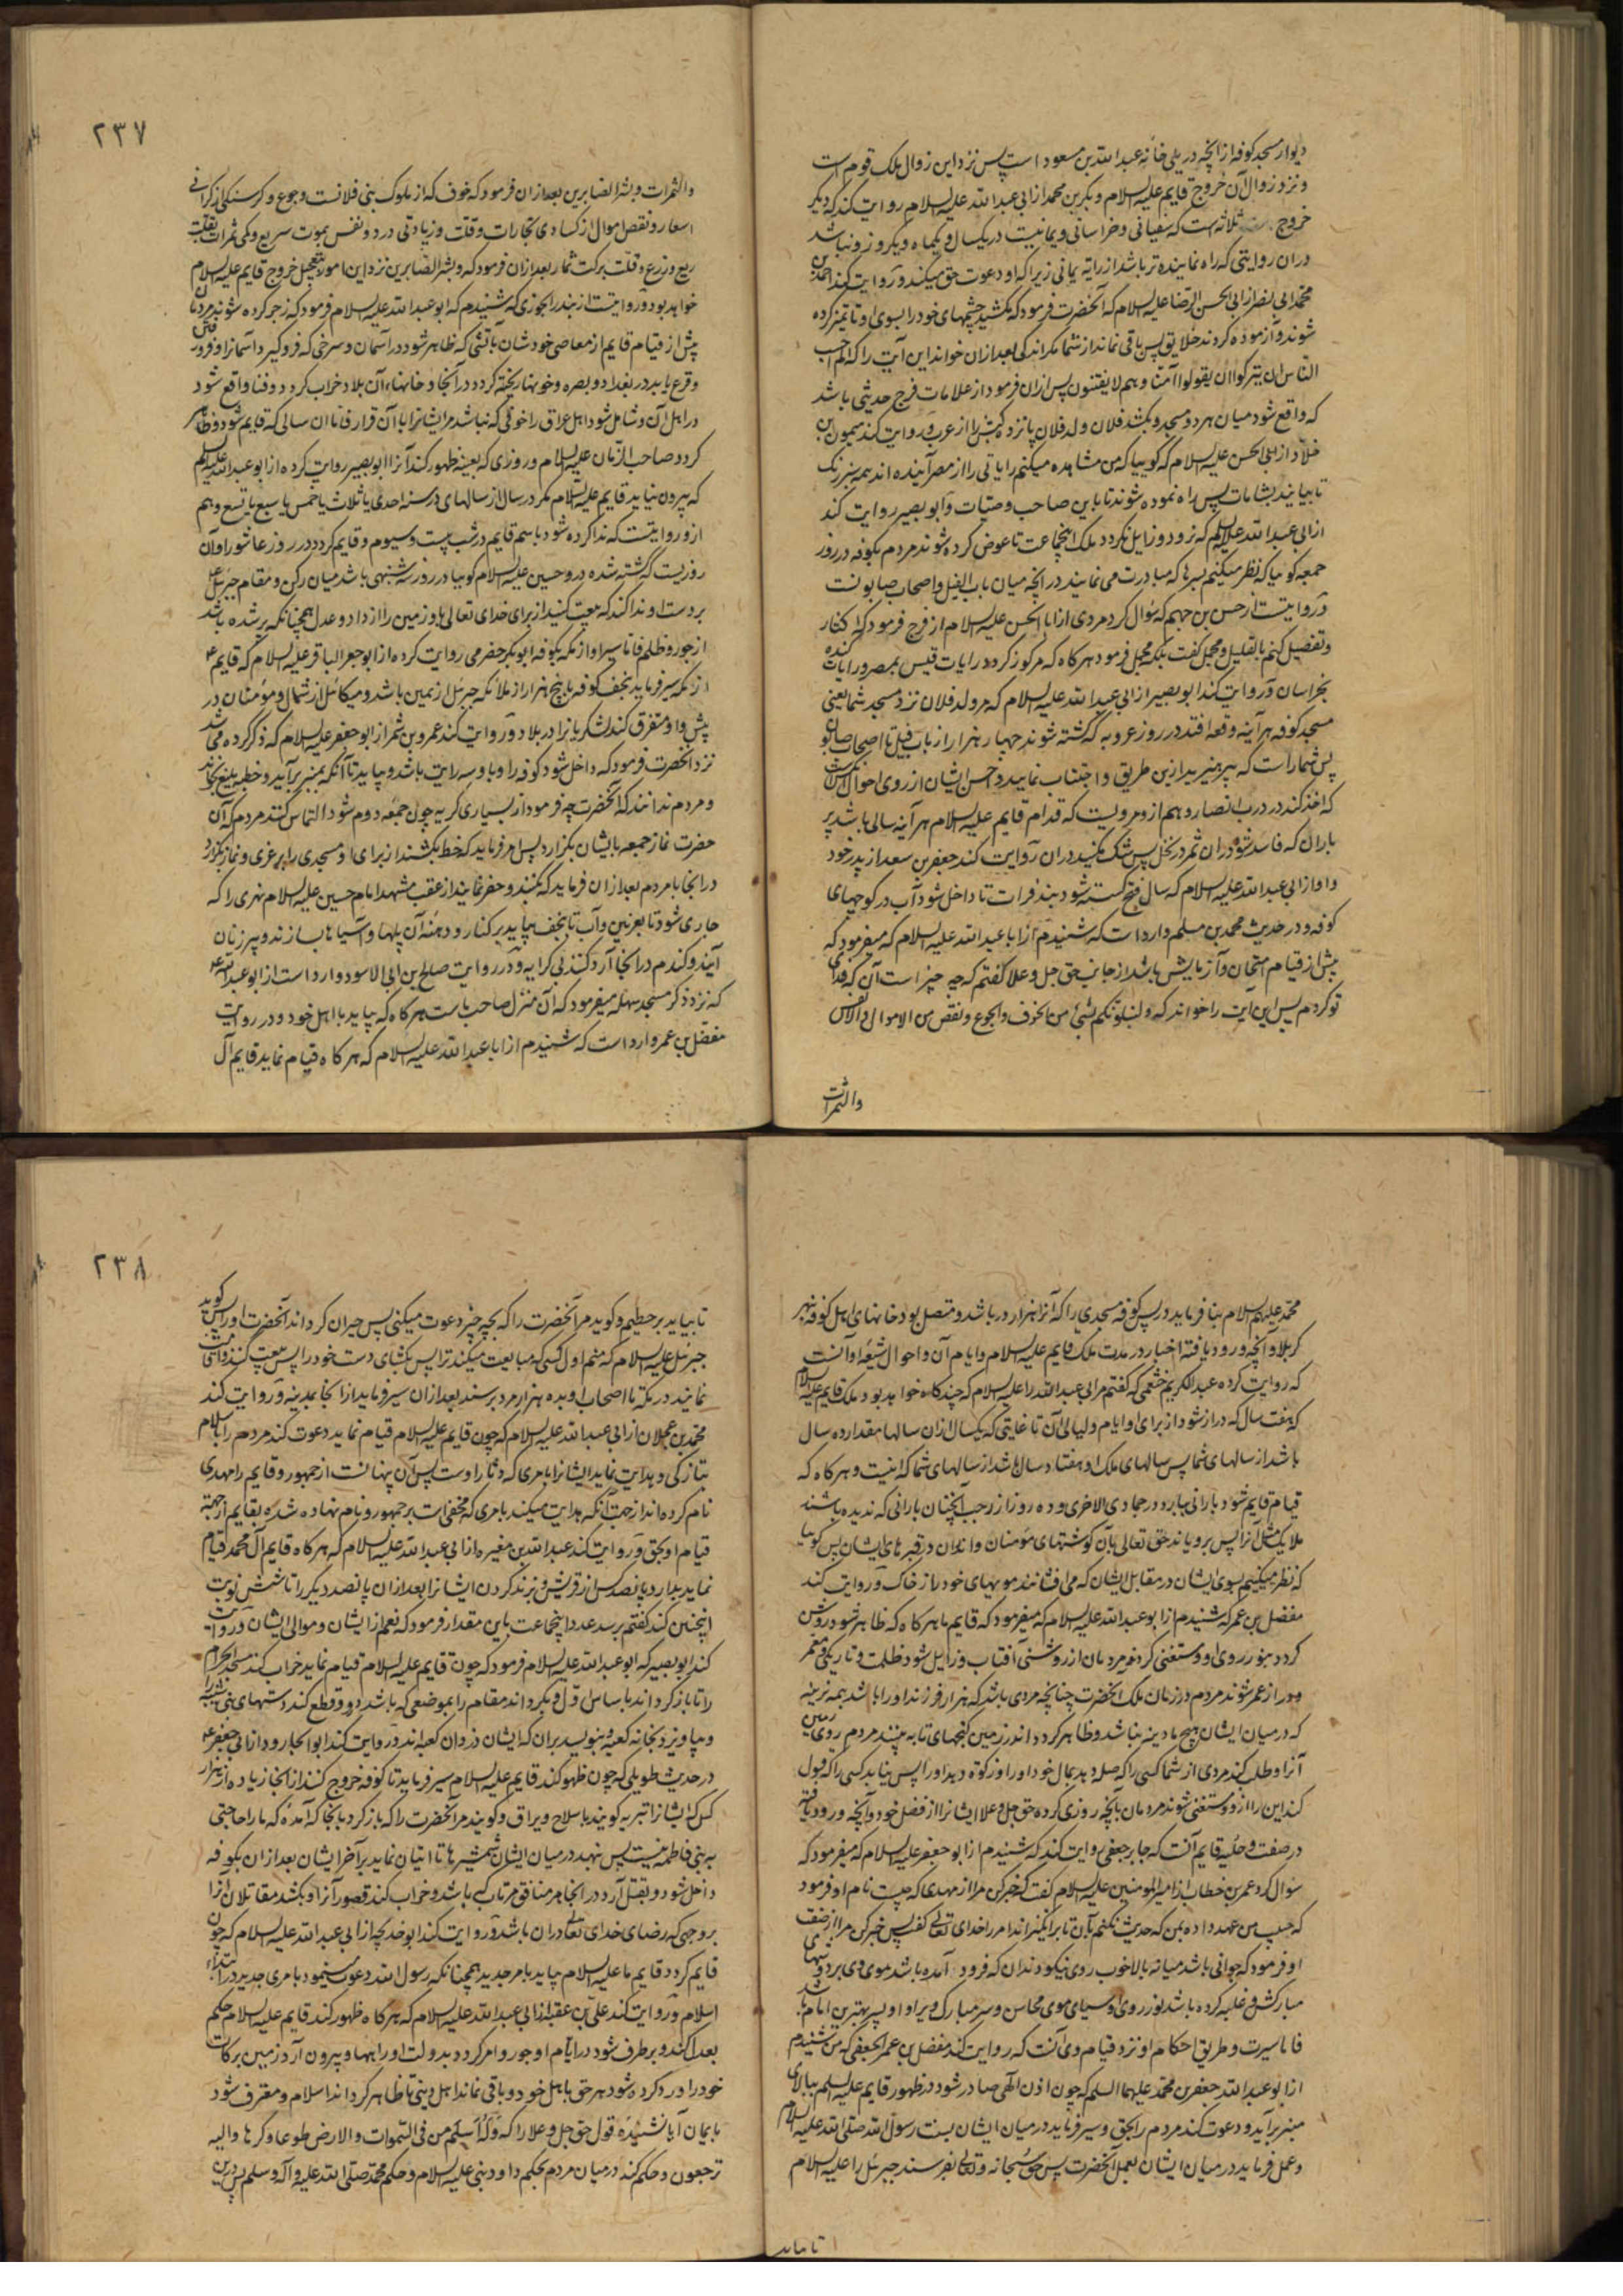 دیوار مسجد کوفه از آنچه در پلی خانه عبدالله بن مسعود است پس نزد این زوال ملک قوم است
و نزد زوال آن خروج قایم علیه السلام و بکر بن محمد از ابی عبدالله علیه السلام روایت کند که دیگر
خروج ثلاثه است که سفیانی و خراسانی و یمانیست در یکسال و یکماه و یکروز و نباشد
در آن روایتی که راه نماینده تر باشد از رایة یمانی زیرا که او دعوت حق میکند و روایت کند احمد بن
محمد ابی نصر از ابی الحسن الرضا علیه السلام که آنحضرت فرمود که نکشید چشمهای خود را بسوی او تا تمیز کرده
شوند و آزموده کردند خلایق پس باقی نماند از شما مگر اندکی بعد از آن خواند این آیت را که الم احسب
الناس ان یترکوا ان یقولوا آمنا و هم لا یفتنون پس از آن فرمود از علامات فرج حدیثی باشد
که واقع شود میان هر دو مسجد و بکشد فلان ولد فلان پانزده کبش را از عرب و روایت کند میمون بن
خلاد از ابی الحسن علیه السلام که گوییا که من مشاهده میکنم رایاتی را از مصر آینده اند همه سبز رنگ
تا بیایند بشامات پس راه نموده شوند تا باین صاحب وصیات و ابو بصیر روایت کند
از ابی عبدالله علیه السلام که نرود و زایل نگردد ملک اینجماعت تا عوض کرده شوند مردم بکوفه در روز
جمعه گوییا که نظر میکنم بسرها که مبادرت می نمایند در آنچه میان باب الفیل و اصحاب صابونست
و روایتست از حسن بن جهم که سوال کرد مردی از ابا الحسن علیه السلام از فرج فرمود که اکثار
و تفصیل کنم یا بقلیل و مجمل گفت بلکه مجمل فرمود هر کاه که مرکوز کردد رایات قیس بمصر و رایات کنده
بخراسان و روایت کند ابو بصیر از ابی عبدالله علیه السلام که مر ولد فلان نزد مسجد شما یعنی
مسجد کوفه هر آینه وقعه افتد در روز عروبه که کشته شوند چهار هزار از باب فیل تا اصحاب صابون
پس شما راست که بپرهیزید ازین طریق و اجتناب نمایید و احسن ایشان از روی احوال
که اخذ کند در درب انصار و هم از و مرویست که قدام قایم علیه السلام هر آینه سالی باشد پر
باران که فاسد شود در آن ثمر در نخل پس شک نکنید در آن روایت کند جعفر بن سعد از پدر خود
و او از ابی عبدالله علیه السلام که سال فتح کسسته شود بند فرات تا داخل شود آب در کوچهای
کوفه و در حدیث محمد بن مسلم وارد است که شنیدم از ابا عبدالله علیه السلام که میفرمود که
پیش از قیام امتحان و آزمایش باشد از جانب حق جل و علا گفتم که چه چیز است آن که فدای
تو کردم پس این آیت را خواند که و لنبلونکم بشیء من الخوف و الجوع و نقص من الاموال و الانفس
والثمرات
۲۳۷
والثمرات و بشر الصابرین بعد از آن فرمود که خوف که از ملوک بنی فلانست و جوع و کرسنکی از کرانی
اسعار و نقص اموال از کسادی تجارات و قلت و زیادتی در و و نفس بموت سریع و کمی ثمرات بقلت
ریع و زرع و قلت برکت ثمار بعد از آن فرمود که و بشر الصابرین نزد این امور بتعجیل خروج قایم علیه السلام
خواهد بود و روایتست از منذر الجوزی که شنیدم که ابو عبدالله علیه السلام فرمود که زجر کرده شوند مردمان
پیش از قیام قایم از معاصی خودشان بآتشی که ظاهر شود در آسمان و سرخی که فرو گیرد آسمانرا و فرو
و قرع یابد در بغداد و بصره و خونها ریخته گردد در آنجا و خانهاء آن بلاد خراب گردد و فنا واقع شود
در اهل آن و شامل شود اهل عراق را خوفی که نباشد مر ایشانرا با آن قرار فاما آن سالی که قایم شود و ظاهر
گردد صاحب الزمان علیه السلام و روزی که بعینه ظهور کند آنرا ابو بصیر روایت کرده از ابو عبدالله علیه السلام
که بیرون نیاید قایم علیه السلام مگر در سال از سالهای در سنه احدی یا ثلاث یا خمس یا سبع یا تسع و هم
از و روایتست که ندا کرده شود باسم قایم در شب بیست و سیوم و قایم گردد در روز عاشورا و آن
روزیست که کشته شده در و حسین علیه السلام گوییا در روز شنبهی باشد میان رکن و مقام جبرئیل
بر دست او ندا کند که بیعت کنید از برای خدای تعالی و زمین را از داد و عدل همچنانکه پر شده باشد
از جور و ظلم فاما سیر او از مکه بکوفه ابوبکر حضرمی روایت کرده از ابو جعفر الباقر علیه السلام که قایم
از مکه سیر فرماید بنجف کوفه با پنج هزار از ملائکه جبرئیل از یمین باشد و میکائیل از شمال و مؤمنان در
پیش وا و متفرق کند لشکریانرا در بلاد و روایت کند عمرو بن شمر از ابو جعفر علیه السلام که ذکر کرده می شد
نزد آنحضرت فرمود که داخل شود کوفه را و با و سه رایت باشد و بیاید تا آنکه بمنبر برآید و خطبه بلیغ بخواند
و مردم ندانند که آنحضرت چه فرمود از بسیاری گریه چون جمعه دوم شود التماس کنند مردم که آن
حضرت نماز جمعه بایشان بکزارد پس امر فرماید که خط بکشند از برای او مسجدی را بر غری و نماز بکزارد
در آنجا با مردم بعد از آن فرماید که بکنند و حفر نمایند از عقب مشهد امام حسین علیه السلام نهری را که
جاری شود تا بغرنین و آب تا بنجف بیاید بر کنار رود دهنه آن پلها و آسیاها بسازند و پیر زنان
آیند و کندم در آنجا آرد کنند بی کرایه و در روایت صالح بن ابی الاسود وارد است از ابو عبدالله
که نزد ذکر مسجد سهله میفرمود که آن منزل صاحب ماست هر کاه که بیاید با اهل خود و در روایت
مفضل بن عمرو وارد است که شنیدم از ابا عبدالله علیه السلام که هر کاه قیام نماید قایم آل
محمد علیهم السلام بنا فرماید در پس کوفه مسجدی را که آنرا هزار در باشد و متصل بود خانهای اهل کوفه بنهر
کربلا و آنچه ورود یافته اخبار در مدت ملک قایم علیه السلام و ایام آن و احوال شیعه او آنست
که روایت کرده عبدالکریم خثعمی که گفتم مر ابی عبدالله را علیه السلام که چند کاه خواهد بود ملک قایم علیه السلام
که هفت سال که دراز شود از برای او ایام و لیالی آن تا غایتی که یکسال از آن سالها مقدار ده سال
باشد از سالهای شما پس سالهای ملک او هفتاد سال باشد از سالهای شما که اینست و هر کاه که
قیام قایم شود بارانی ببارد در جمادی الاخری و ده روز از رجب آنچنان بارانی که ندیده باشند
ملایک مثل آنرا پس برویاند حق تعالی بآن گوشتهای مؤمنان و ابدان در قبرهای ایشان پس گوییا
که نظر میکنم بسوی ایشان در مقابل ایشان که می افشانند مویهای خود را از خاک و روایت کند
مفضل بن عمر که شنیدم از ابو عبدالله علیه السلام که میفرمود که قایم ما هر کاه که ظاهر شود روشن
گردد بنور روی او و مستغنی گردند مردمان از روشنی آفتاب و زایل شود ظلمت و تاریکی و معمر
و دراز عمر شوند مردم در زمان ملک آنحضرت چنانچه مردی باشد که هزار فرزند او را باشد همه نرینه
که در میان ایشان هیچ مادینه نباشد و ظاهر گرداند زمین گنجهای تا به بینند مردم روی زمین
آنرا و طلب کند مردی از شما کسی را که صله دهد بمال خود او را و زکوة دهد او را پس نیابد کسی را که قبول
کند این را از و و مستغنی شوند مردمان بآنچه روزی کرده حق جل و علا ایشانرا از فضل خود و آنچه ورود یافته
در صفت و حلیه قایم آنست که جابر جعفی روایت کند که شنیدم از ابو جعفر علیه السلام که میفرمود که
سوال کرد عمر بن خطاب از امیر المومنین علیه السلام گفت که خبر کن مرا از مهدی که چیست نام او فرمود
که حبیب من عهد داده بمن که حدیث نکنم بآن تا برانگیزاند مر او را خدای تعالی گفت پس خبر کن مرا از صفت
او فرمود که جوانی باشد میانه بالا خوب روی نیکو دندان که فرود آمده باشد موی وی بر دوشهای
مبارکش و غلبه کرده باشد نور روی او بسیاهی موی محاسن و سر مبارک ویرا و او پسر بهترین اماء باشد
فاما سیرت و طریق احکام او نزد قیام وی آنست که روایت کند مفضل بن عمر الجعفی که من شنیدم
از ابو عبدالله جعفر بن محمد علیهما السلم که چون اذن الهی صادر شود در ظهور قایم علیه السلم ببالای
منبر برآید و دعوت کند مردم را بحق و سیر فرماید در میان ایشان بسنت رسول الله صلی الله علیه السلام
و عمل فرماید در میان ایشان بعمل آنحضرت پس حق سبحانه و تعالی بفرستد جبرئیل را علیه السلام
تا بیاید
۲۳۸
تا بیاید بر حطیم و گوید مر آنحضرت را که بچه چیز دعوت میکنی پس حیران کرداند آنحضرت او را پس گوید
جبرئیل علیه السلام که منم اول کسی که مبایعت میکند ترا پس بکشای دست خود را پس بیعت کند و آشتی
نمایند در مکه تا اصحاب او بده هزار مرد برسند بعد از آن سیر فرماید از آنجا بمدینه و روایت کند
محمد بن عجلان از ابی عبدالله علیه السلام که چون قایم علیه السلام قیام نماید دعوت کند مردم را باسلام
بتازگی و هدایت نماید ایشانرا بامری که دثار اوست پس آن پنهانست از جمهور و قایم را مهدی
نام کرده اند از جهت آنکه هدایت میکند بامری که مخفیات بر جمهور و نام نهاده شده بقایم از جهة
قیام او بحق و روایت کند عبدالله بن مغیره از ابی عبدالله علیه السلام که هر کاه قایم آل محمد قیام
نماید بدارد پانصد کس از قریش و بزند گردن ایشانرا بعد از آن پانصد دیگر را تا شش نوبت
اینچنین کند گفتم برسد عدد اینجماعت باین مقدار فرمود که نعم از ایشان و موالی ایشان و روایت
کند ابو بصیر که ابو عبدالله علیه السلام فرمود که چون قایم علیه السلام قیام نماید خراب کند مسجد الحرام
را تا باز گرداند باساس اول و بگرداند مقام را بموضعی که باشد در و و قطع کند دستهای بنی شیبه را
و بیاویزد بخانه کعبه و بنویسد بر آن که ایشان دزدان کعبه اند و روایت کند ابو الجارود از ابی جعفر
در حدیث طویلی که چون ظهور کند قایم علیه السلام سیر فرماید تا کوفه خروج کنند از آنجا زیاده از ده هزار
کس که ایشانرا تبریه گویند با سلاح و یراق و گویند مر آنحضرت را که باز گرد بآنجا که آمده که ما را حاجتی
به بنی فاطمه نیست پس بنهد در میان ایشان شمشیرها تا اتیان نماید بر آخر ایشان بعد از آن بکوفه
داخل شود و بقتل آرد در آنجا هر منافق مرتاب که باشد و خراب کند قصور آنرا و بکشد مقاتلان آنرا
بر وجهی که رضای خدای تعالی در آن باشد و روایت کند ابو خدیجه از ابی عبدالله علیه السلام که چون
قایم گردد قایم ما علیه السلام بیاید بامر جدید همچنانکه رسول الله دعوت مینمود بامری جدید در ابتداء
اسلام و روایت کند علی بن عقبه از ابی عبدالله علیه السلام که هر گاه ظهور کند قایم علیه السلام حکم
بعدل کند و بر طرف شود در ایام او جور و امن گردد بدولت او راهها و بیرون آرد زمین برکات
خود را و رد کرده شود هر حق باهل خود و باقی نماند اهل دینی تا ظاهر گرداند اسلام و معترف شود
بایمان آیا نشنیده قول حق جل و علا را که وَلَهُ أسلم من فی السموات و الارض طوعا و کرها و الیه
ترجعون و حکم کند در میان مردم بحکم داود نبی علیه السلام و حکم محمد صلی الله علیه و آله و سلم پس درین